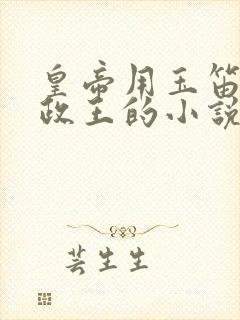 皇帝用玉笛
政王的小說
芸生生